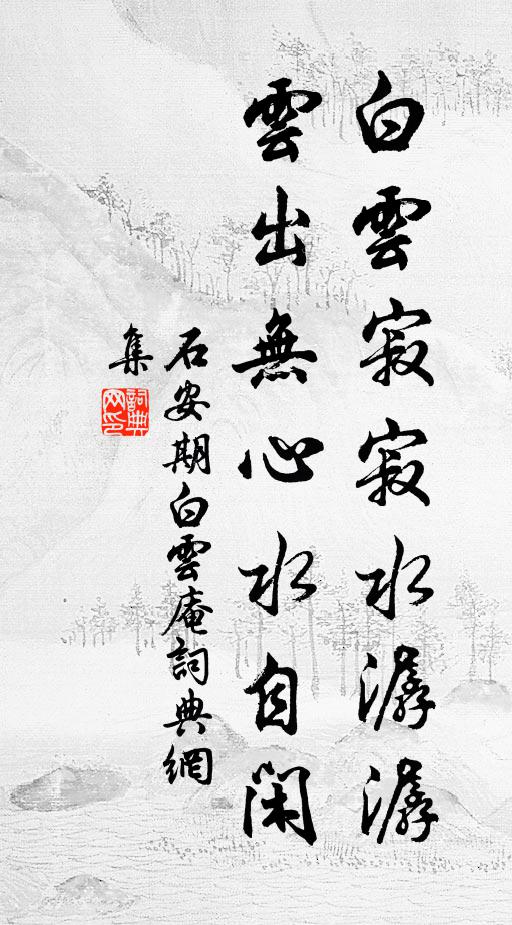 白雲寂寂水潺潺
雲出無心水自閑
石安期白雲庵詞典網
集
詞典
网印